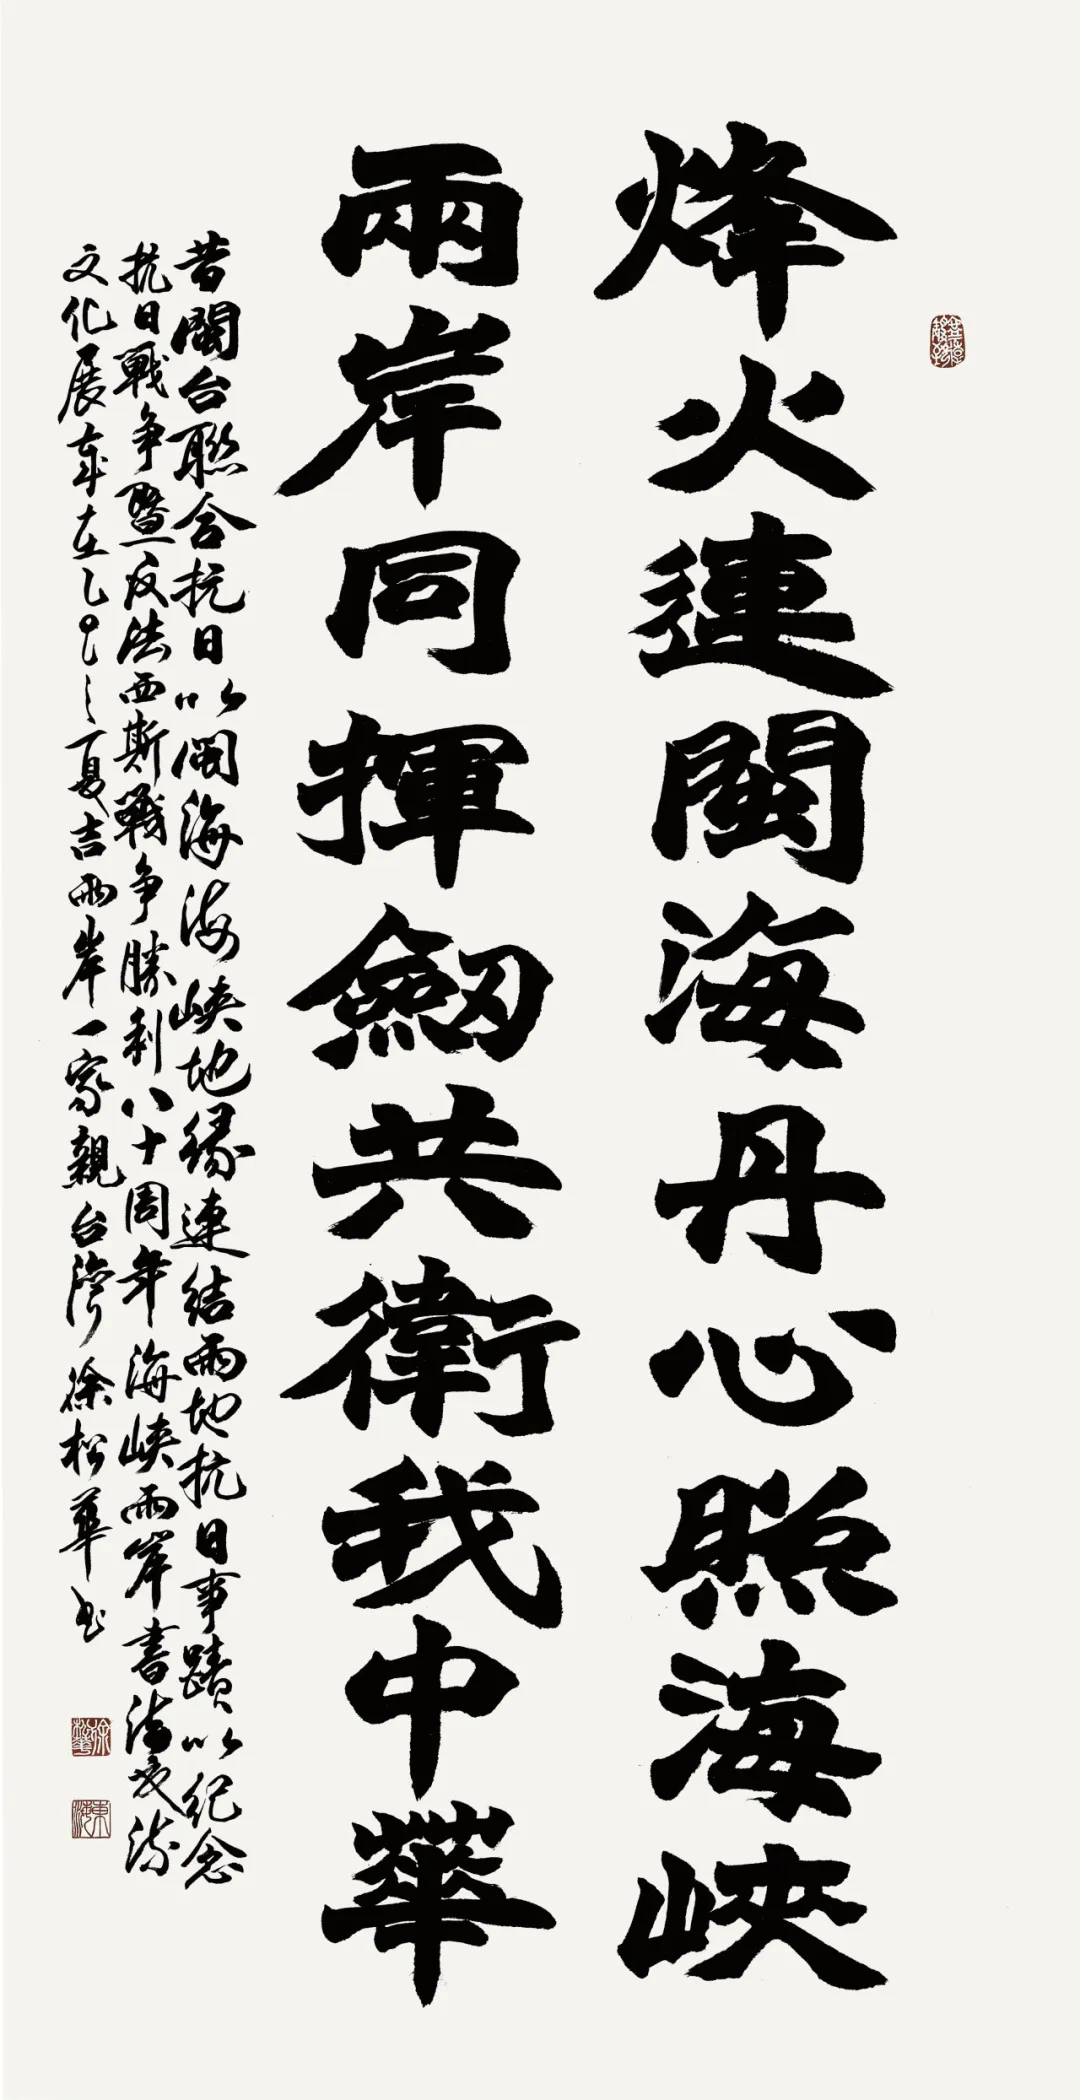 烽火連閩海丹心照海峽
兩岸同揮劒共衛我中華
昔閩台聯合抗日以閩海海峽地緣連結兩地抗日事蹟以紀念
抗日戰争暨反法西斯戰争勝利八十周年海峽兩岸書法交流
文化展歲在乙巳之夏吉兩岸一家親台灣徐松華书
徐松華
東海